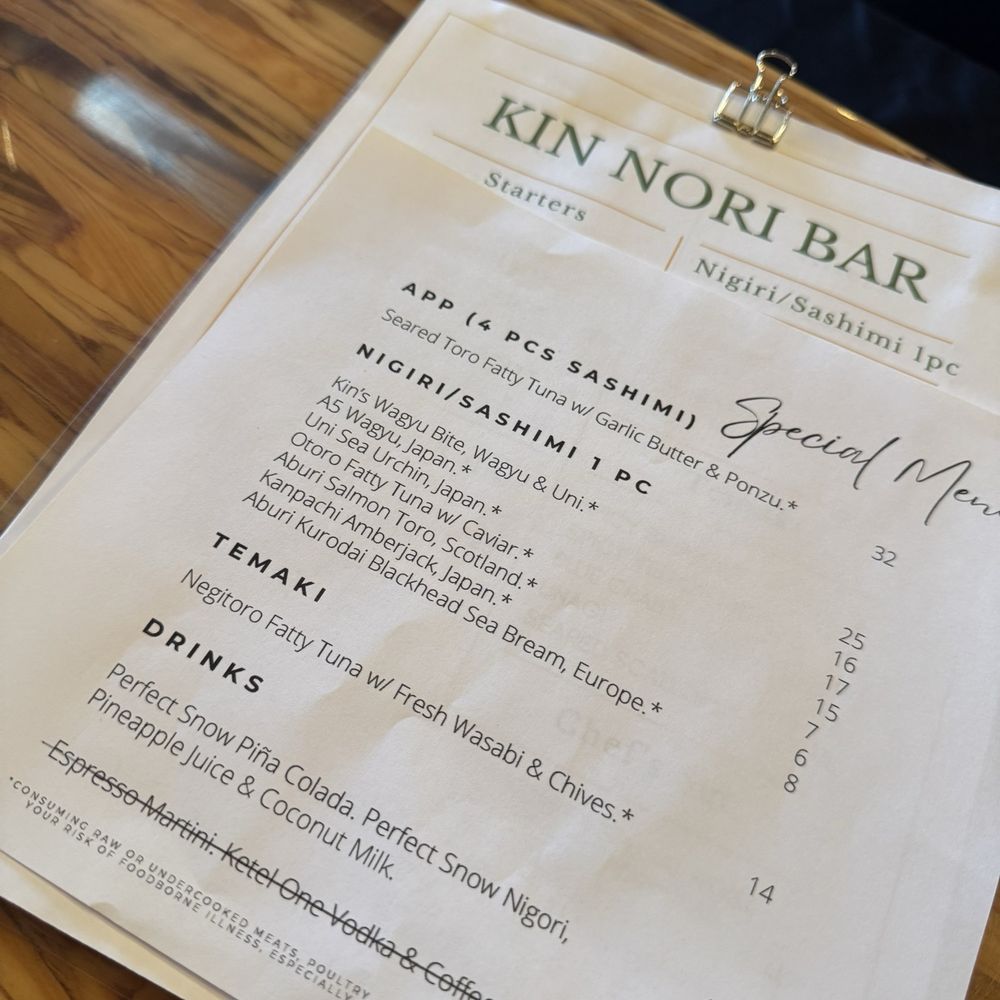 KIN NORI BAR
Starters
Nigiri/Sashimi 1pc
Special
APP (4 PCS SASHIMI)
Seared Toro Fatty Tuna w/ Garlic Butter & Ponzu.* 32
NIGIRI/SASHIMI 1 PC
Kin's Wagyu Bite, Wagyu & Uni.* 25
A5 Wagyu, Japan.* 16
Uni Sea Urchin, Japan.* 17
Otoro Fatty Tuna w/ Caviar.* 15
Aburi Salmon Toro, Scotland.* 7
Kanpachi Amberjack, Japan.* 6
Aburi Kurodai Blackhead Sea Bream, Europe.* 8
TEMAKI
Negitoro Fatty Tuna w/ Fresh Wasabi & Chives.* 14
DRINKS
Perfect Snow Piña Colada. Perfect Snow Nigori,
Pineapple Juice & Coconut Milk.
Espresso Martini. Ketel One Vodka &
*CONSUMING RAW OR UNDERCOOKED MEATS, POULTRY
YOUR RISK OF FOODBORNE ILLNESS, ESPECIALLY